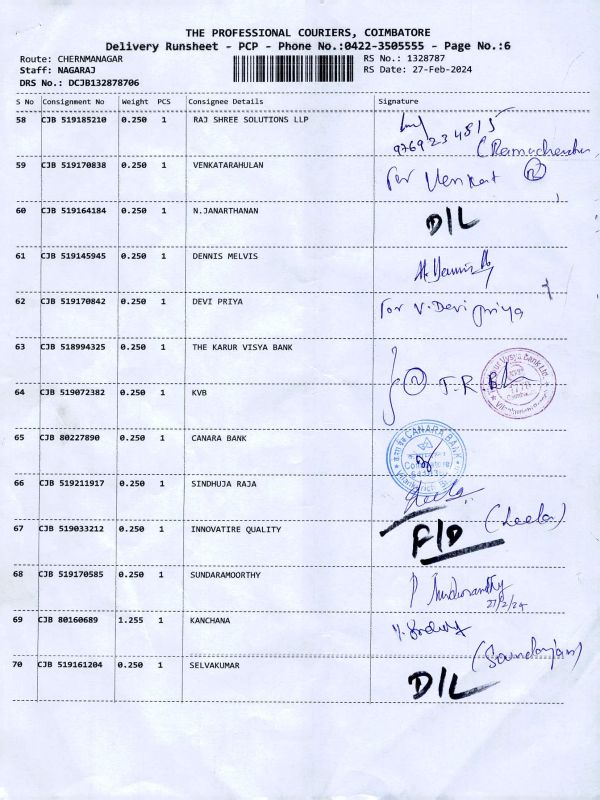 THE PROFESSIONAL COURIERS, COIMBATORE
Delivery Runsheet - PCP - Phone No.:0422-3505555 - Page No.:6
Route: CHERNMANAGAR RS No.: 1328787
Staff: NAGARAJ RS Date: 27-Feb-2024
DRS No.: DCJB132878706
S No Consignment No Weight PCS Consignee Details Signature
58 CJB 519185210 0.250 1 RAJ SHREE SOLUTIONS LLP
9769234815
59 CJB 519170838 0.250 1 VENKATARAHULAN For Venkat
60 CJB 519164184 0.250 1 N.JANARTHANAN D/L
61 CJB 519145945 0.250 1 DENNIS MELVIS
62 CJB 519170842 0.250 1 DEVI PRIYA For V. Devi priya
63 CJB 518994325 0.250 1 THE KARUR VISYA BANK
64 CJB 519072382 0.250 1 KVB
65 CJB 80227890 0.250 1 CANARA BANK CANARA BANK
66 CJB 519211917 0.250 1 SINDHUJA RAJA
(Leela)
67 CJB 519033212 0.250 1 INNOVATIRE QUALITY F/D
68 CJB 519170585 0.250 1 SUNDARAMOORTHY
27/2/24
69 CJB 80160689 1.255 1 KANCHANA
70 CJB 519161204 0.250 1 SELVAKUMAR D/L